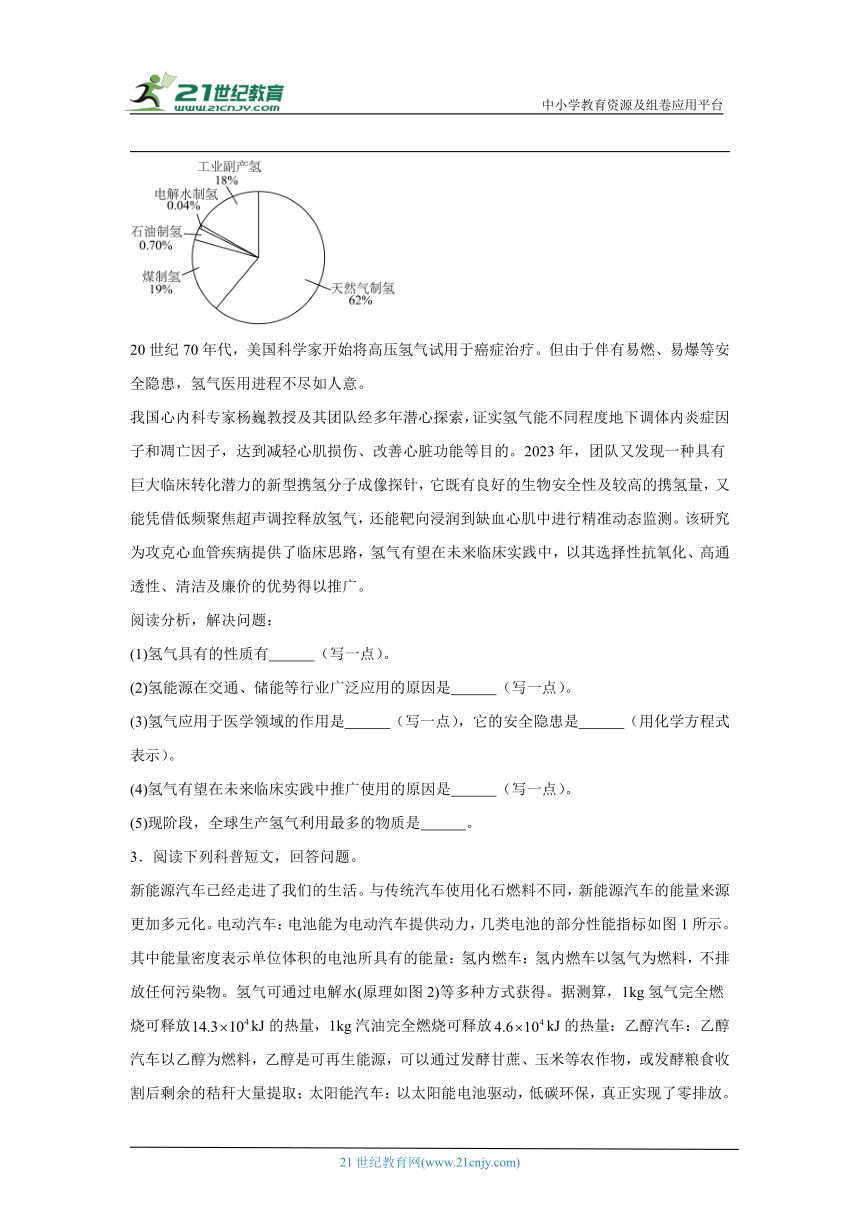 21世纪教育
WWW.21CNJY.COM
中小学教育资源及组卷应用平台
工业副产氢
18%
电解水制氢
0.04%
石油制氢
0.70%
煤制氢
19%
天然气制氢
62%
20世纪70年代，美国科学家开始将高压氢气试用于癌症治疗。但由于伴有易燃、易爆等安
全隐患，氢气医用进程不尽如人意。
我国心内科专家杨巍教授及其团队经多年潜心探索，证实氢气能不同程度地下调体内炎症因
子和凋亡因子，达到减轻心肌损伤、改善心脏功能等目的。2023年，团队又发现一种具有
巨大临床转化潜力的新型携氢分子成像探针，它既有良好的生物安全性及较高的携氢量，又
能凭借低频聚焦超声调控释放氢气，还能靶向浸润到缺血心肌中进行精准动态监测。该研究
为攻克心血管疾病提供了临床思路，氢气有望在未来临床实践中，以其选择性抗氧化、高通
透性、清洁及廉价的优势得以推广。
阅读分析，解决问题：
(1)氢气具有的性质有______（写一点）。
(2)氢能源在交通、储能等行业广泛应用的原因是______（写一点）。
(3)氢气应用于医学领域的作用是______（写一点），它的安全隐患是______（用化学方程式
表示）。
(4)氢气有望在未来临床实践中推广使用的原因是______（写一点）。
(5)现阶段，全球生产氢气利用最多的物质是______。
3．阅读下列科普短文，回答问题。
新能源汽车已经走进了我们的生活。与传统汽车使用化石燃料不同，新能源汽车的能量来源
更加多元化。电动汽车：电池能为电动汽车提供动力，几类电池的部分性能指标如图1所示。
其中能量密度表示单位体积的电池所具有的能量：氢内燃车：氢内燃车以氢气为燃料，不排
放任何污染物。氢气可通过电解水(原理如图2)等多种方式获得。据测算，1kg氢气完全燃
烧可释放14.3×10⁴kJ的热量，1kg汽油完全燃烧可释放4.6×10⁴kJ的热量：乙醇汽车：乙醇
汽车以乙醇为燃料，乙醇是可再生能源，可以通过发酵甘蔗、玉米等农作物，或发酵粮食收
割后剩余的秸秆大量提取；太阳能汽车：以太阳能电池驱动，低碳环保，真正实现了零排放。
21世纪教育网(www.21cnjy.com)